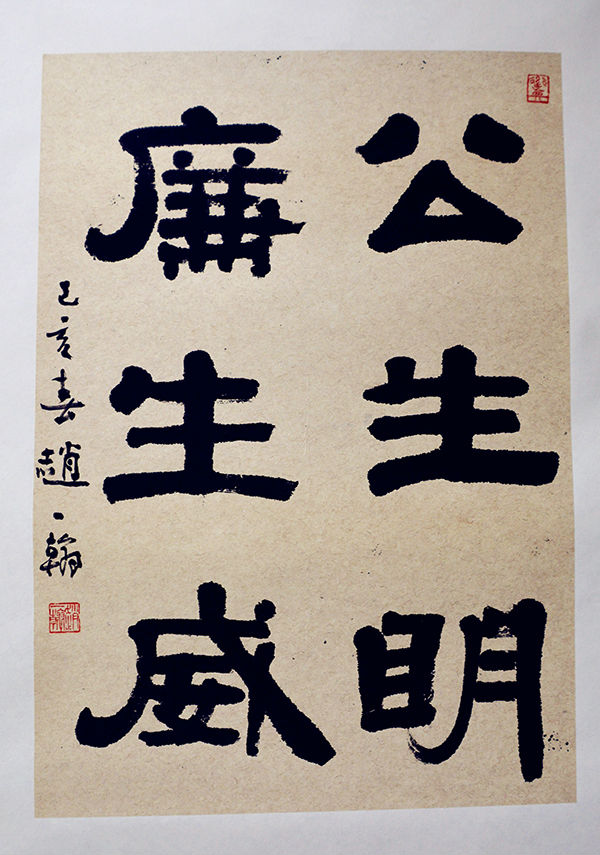 公生明
廉生威
己亥春趙一翰